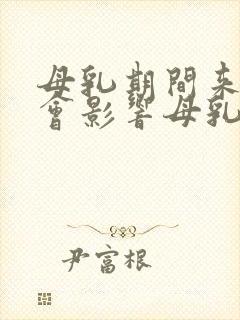 母乳期間来
會影響母乳
尹富根